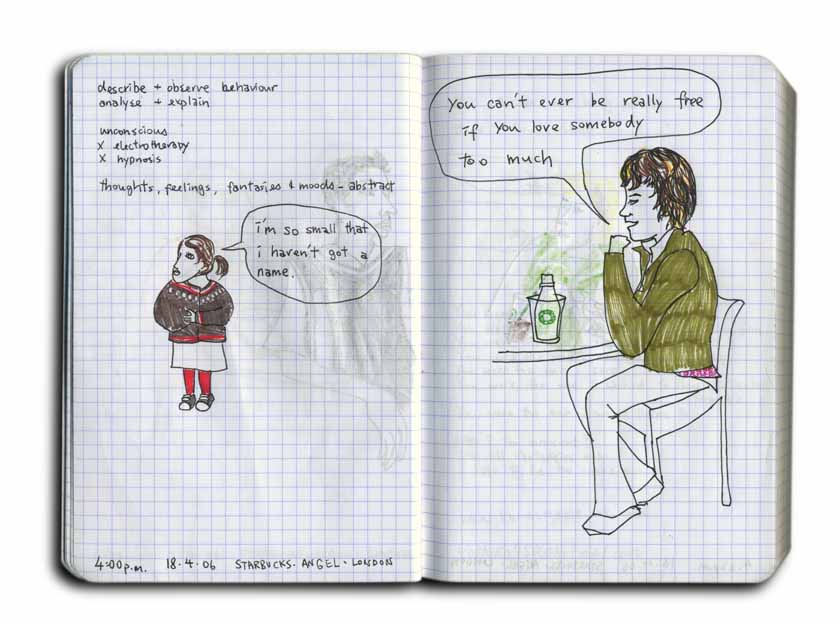 describe + observe behaviour
analyse + explain
unconscious
x electrotherapy
x hypnosis
thoughts, feelings, fantasies & moods - abstract
i'm so small that
i haven't got a
name.
4:00 p.m. 18.4.06 STARBUCKS. ANGEL. LONDON
You can't ever be really free
if you love somebody
too much